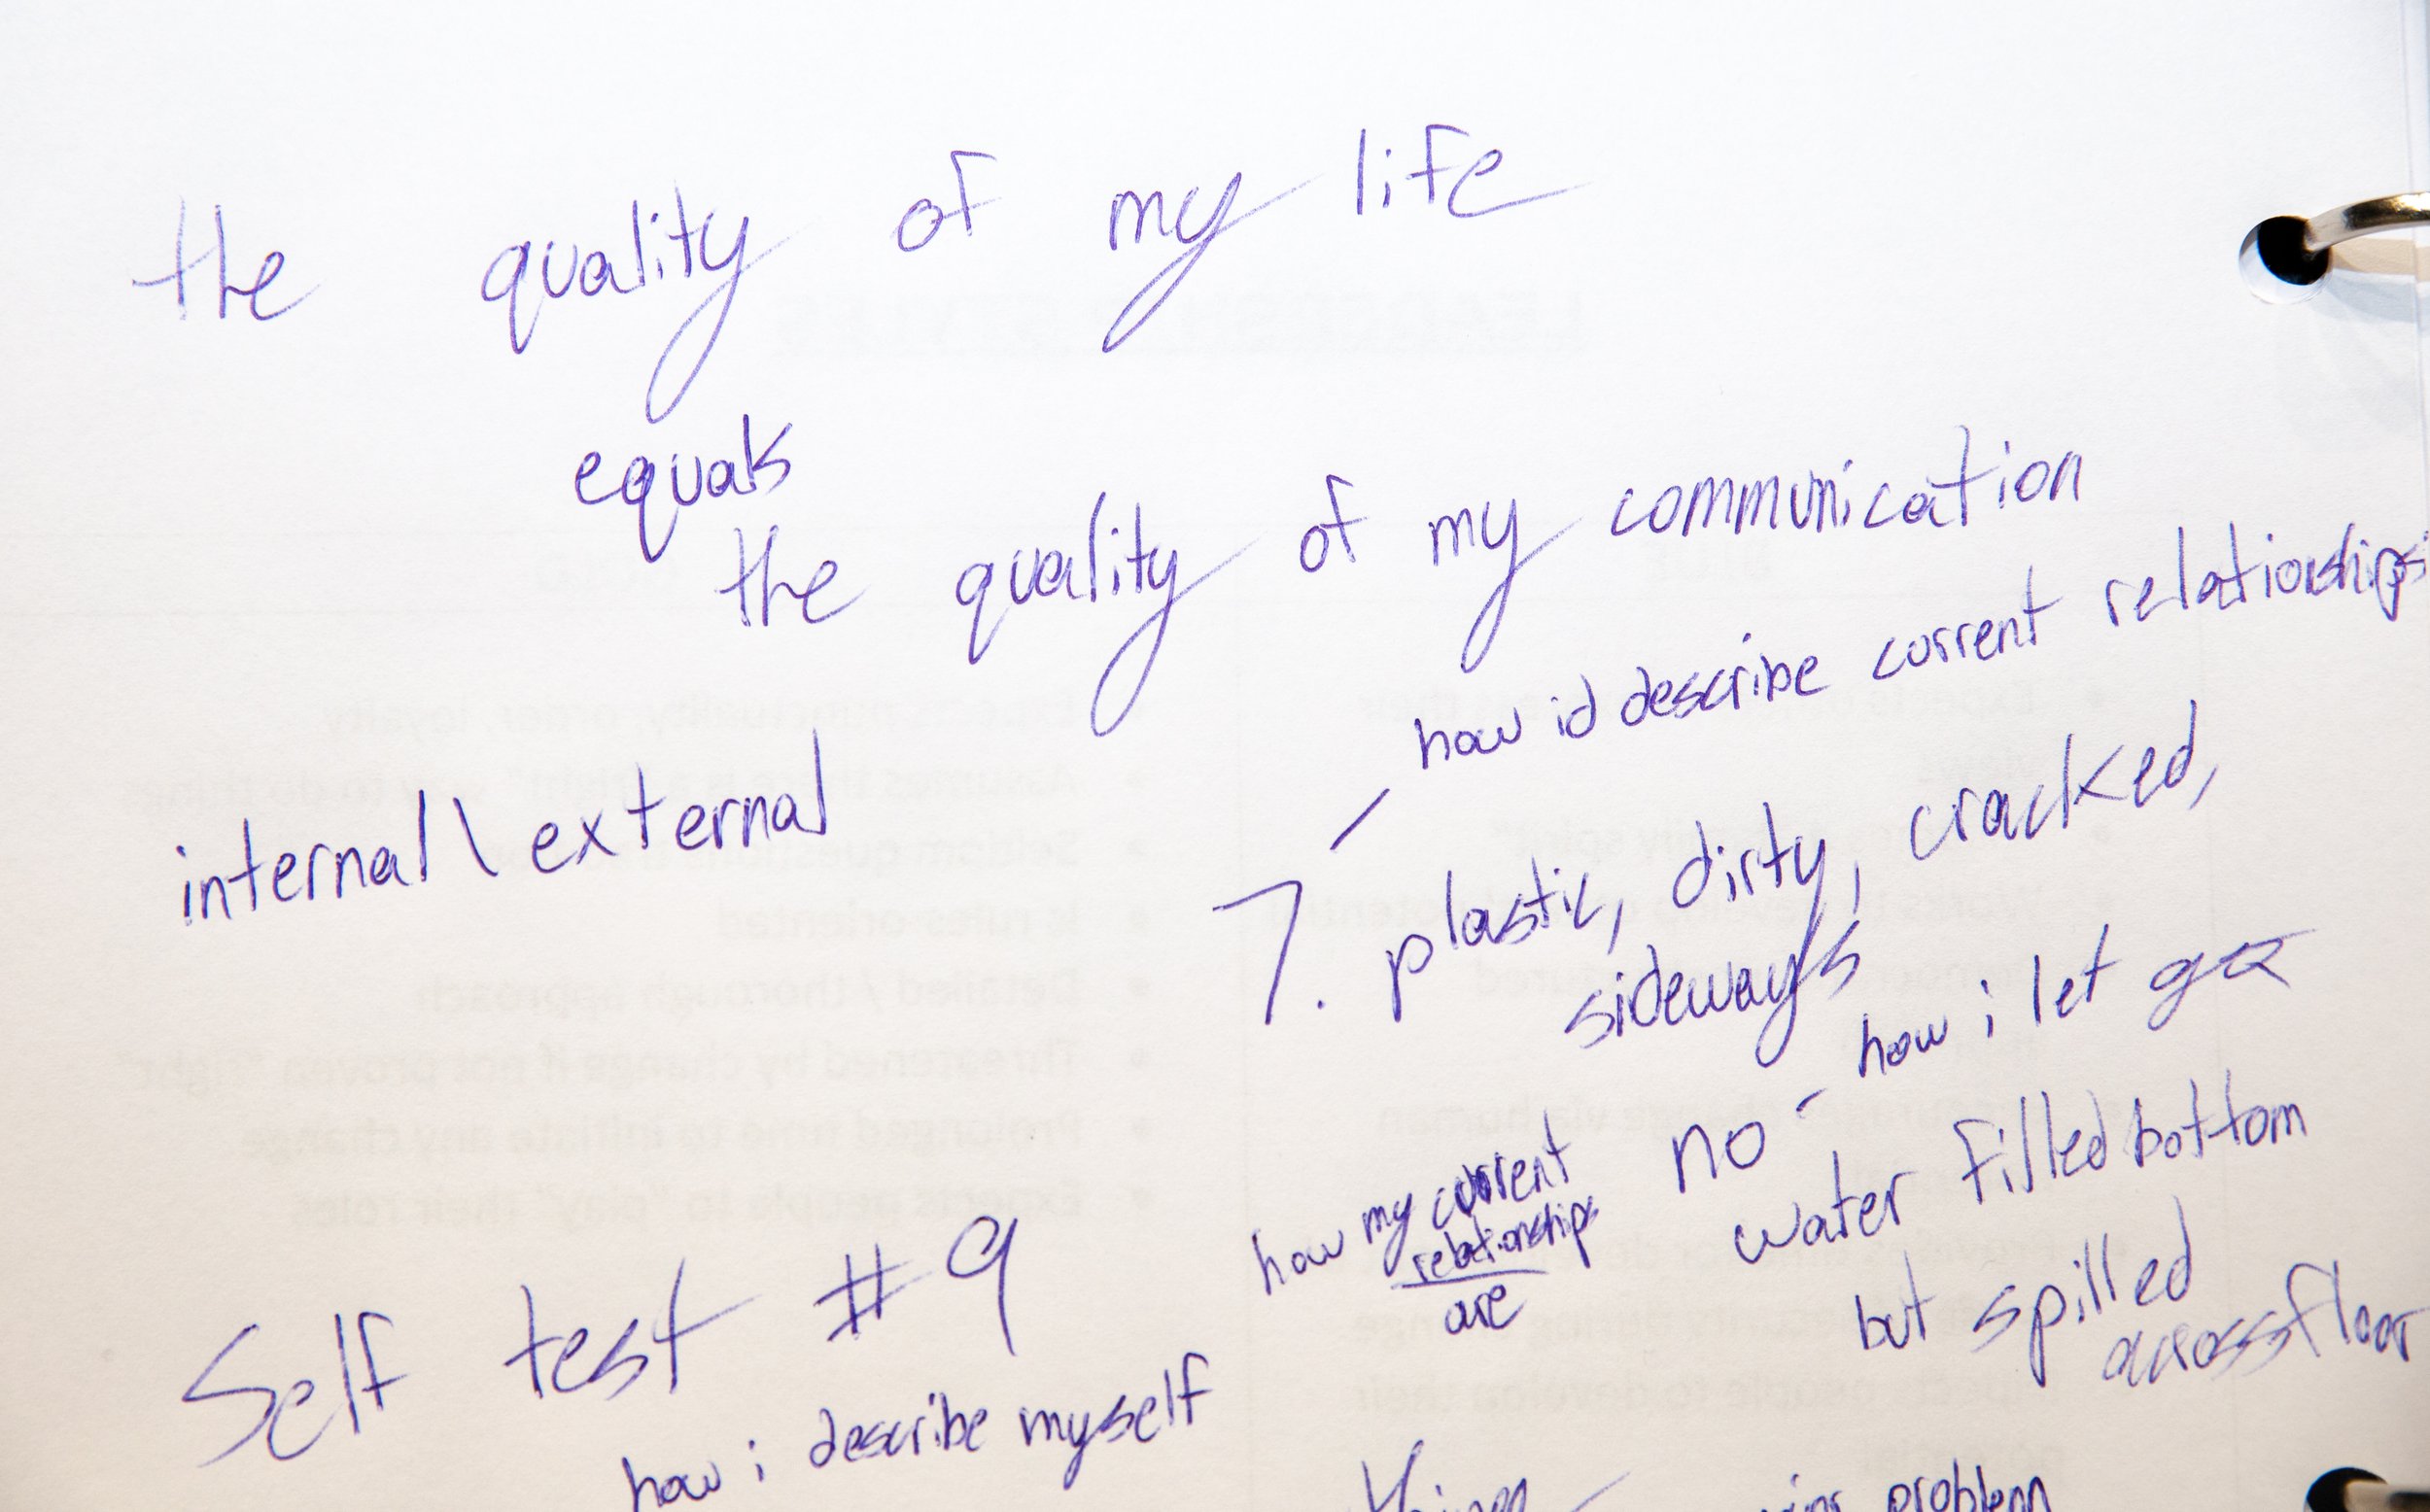 the quality of my life
equals
the quality of my communication
how id describe current relationships
internal \ external
7. plastic, dirty, cracked,
sideways
how i let go
no -
how my current
relationships
are
water filled bottom
but spilled
across floor
Self test #9
how i describe myself
things
problem